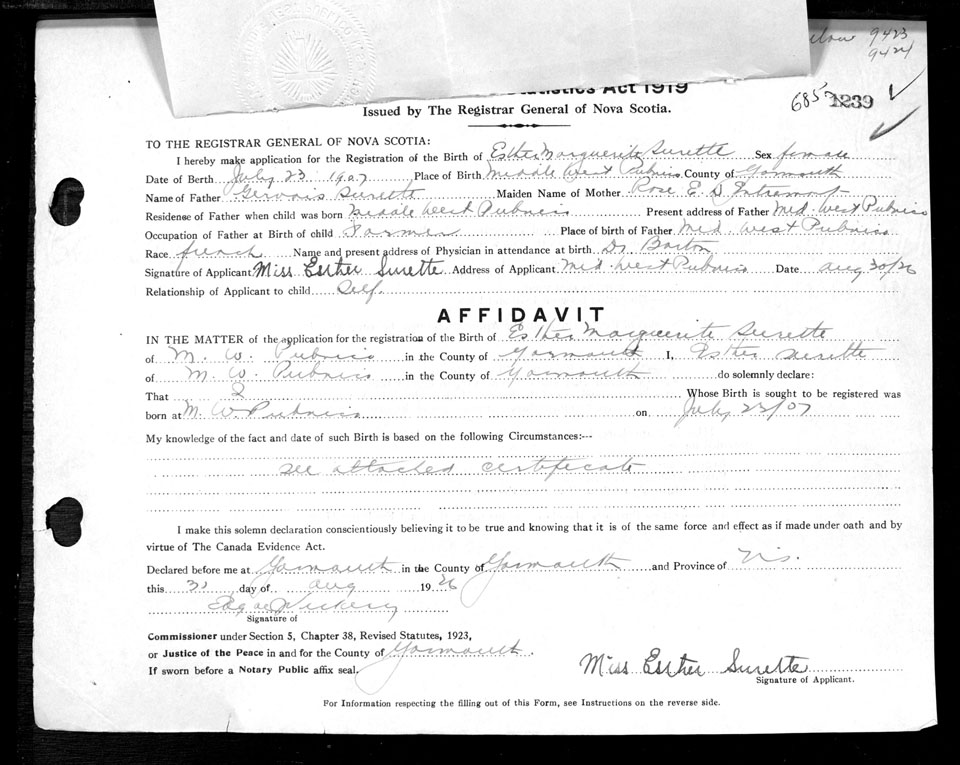 9423
9424
Statistics Act 1919
685 1239
Issued by The Registrar General of Nova Scotia.
TO THE REGISTRAR GENERAL OF NOVA SCOTIA:
I hereby make application for the Registration of the Birth of Esther Marguerite Surette Sex female
Date of Berth July 23 1907 Place of Birth Middle West Pubnico County of Yarmouth
Name of Father Gervais Surette Maiden Name of Mother Rose E. D'Entremont
Residense of Father when child was born Middle West Pubnico Present address of Father Mid. West Pubnico
Occupation of Father at Birth of child Farmer Place of birth of Father Mid. West Pubnico
Race french Name and present address of Physician in attendance at birth Dr Barton
Signature of Applicant Miss Esther Surette Address of Applicant Mid. West Pubnico Date Aug 30/26
Relationship of Applicant to child Self.
AFFIDAVIT
IN THE MATTER of the application for the registration of the Birth of Esther Marguerite Surette
of M. W. Pubnico in the County of Yarmouth I, Esther Surette
of M. W. Pubnico in the County of Yarmouth do solemnly declare:
That I Whose Birth is sought to be registered was
born at M. W. Pubnico on July 23/07
My knowledge of the fact and date of such Birth is based on the following Circumstances:--
see attached certificate
I make this solemn declaration conscientiously believing it to be true and knowing that it is of the same force and effect as if made under oath and by
virtue of The Canada Evidence Act.
Declared before me at Yarmouth in the County of Yarmouth and Province of N.S.
this 31 day of Aug 1926
Signature of
Commissioner under Section 5, Chapter 38, Revised Statutes, 1923,
or Justice of the Peace in and for the County of Yarmouth.
If sworn before a Notary Public affix seal.
Miss Esther Surette
Signature of Applicant.
For Information respecting the filling out of this Form, see Instructions on the reverse side.